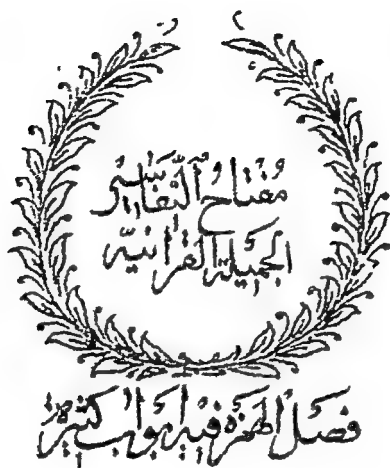 مفتاح التفاسير
الجميلة القرآنية
فصل الهمزة فيه أبواب كثيرة